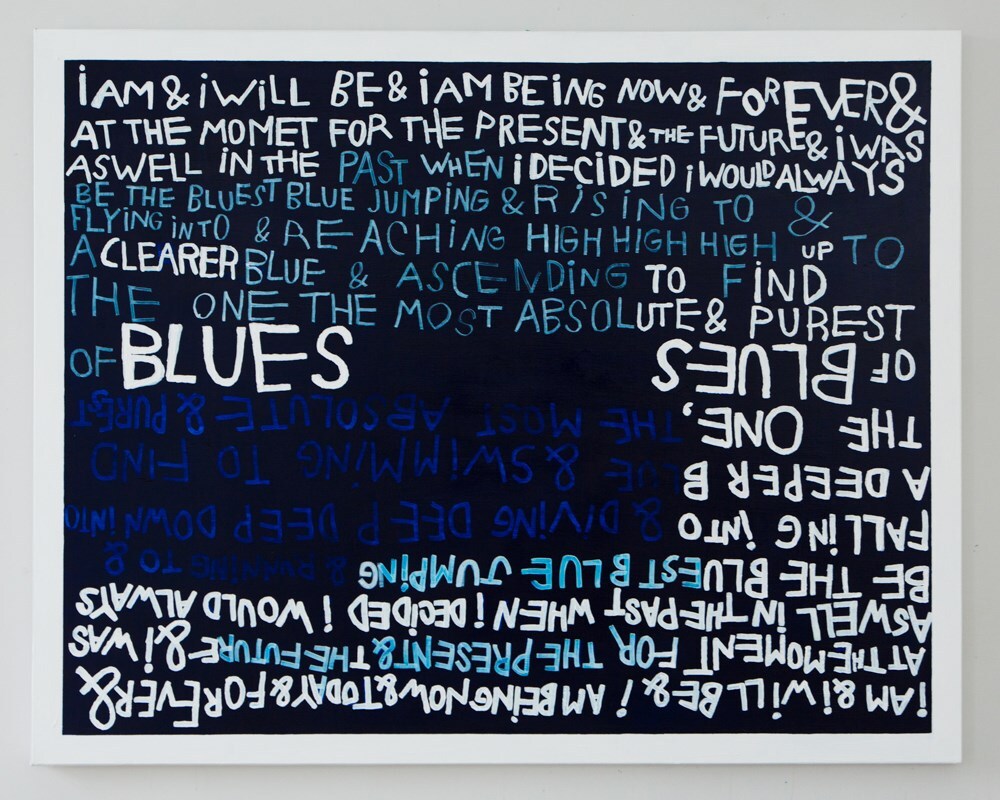 i AM & i WiLL BE & i AM BEiNG NOW & FOREVER &
AT THE MOMET FOR THE PRESENT & THE FUTURE & i WAS
ASWELL IN THE PAST WHEN i DECIDED i WOULD ALWAYS
BE THE BLUEST BLUE JUMPING & RiSiNG TO &
FLYING iNTO & REACHiNG HIGH HIGH HIGH UP TO
A CLEARER BLUE & ASCENDiNG TO FiND
THE ONE THE MOST ABSOLUTE & PUREST
OF BLUES
i AM & i WiLL BE & i AM BEiNG NOW & TODAY & FOREVER &
AT THE MOMENT FOR THE PRESENT & THE FUTURE & i WAS
ASWELL IN THE PAST WHEN i DECIDED i WOULD ALWAYS
BE THE BLUEST BLUE JUMPiNG & RUNNiNG TO &
FALLiNG iNTO & DIViNG DEEP DEEP DOWN iNTO
A DEEPER BLUE & SWiMMiNG TO FIND
THE ONE, THE MOST ABSOLUTE & PUREST
OF BLUES